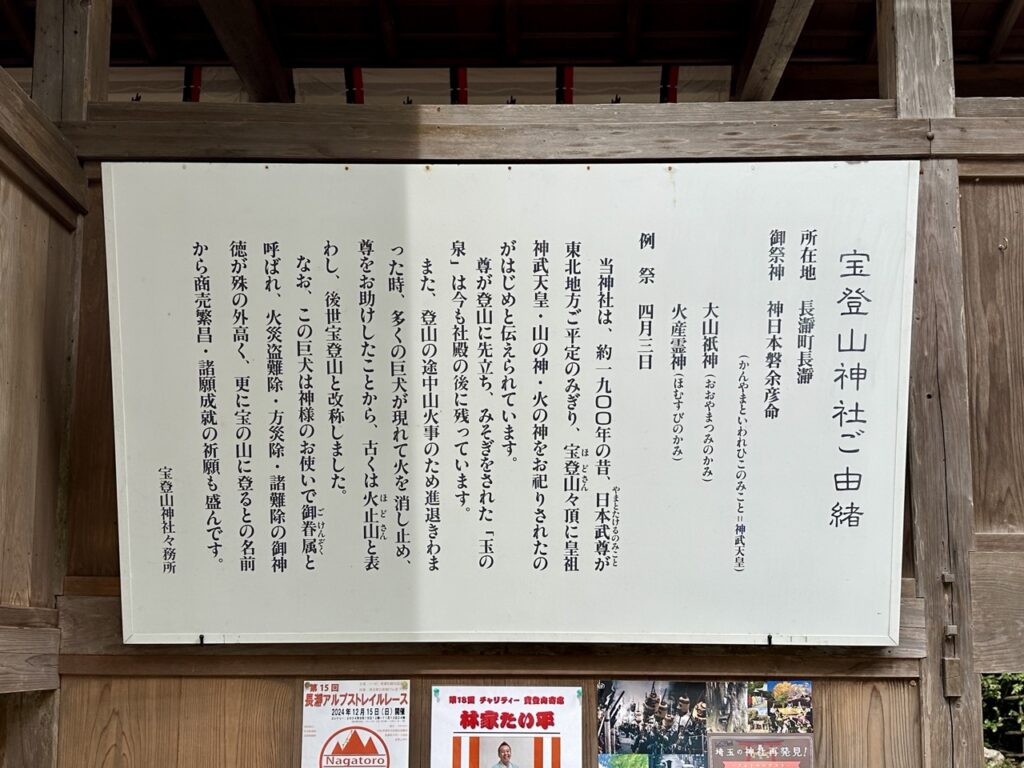 宝登山神社ご由緒
所在地　長瀞町長瀞
御祭神　神日本磐余彦命
（かんやまといわれひこのみこと＝神武天皇）
大山祇神（おおやまつみのかみ）
火産霊神（ほむすびのかみ）
例　祭　四月三日
当神社は、約一九〇〇年の昔、日本武尊が
やまとたけるのみこと
東北地方ご平定のみぎり、宝登山々頂に皇祖
ほどさん
神武天皇・山の神・火の神をお祀りされたの
がはじめと伝えられています。
尊が登山に先立ち、みそぎをされた「玉の
泉」は今も社殿の後に残っています。
また、登山の途中山火事のため進退きわま
った時、多くの巨犬が現れて火を消し止め、
尊をお助けしたことから、古くは火止山と表
ほどさん
わし、後世宝登山と改称しました。
なお、この巨犬は神様のお使いで御眷属と
ごけんぞく
呼ばれ、火災盗難除・方災除・諸難除の御神
徳が殊の外高く、更に宝の山に登るとの名前
から商売繁昌・諸願成就の祈願も盛んです。
宝登山神社々務所
第15回
長瀞アルプストレイルレース
2024年12月15日（日）開催
Nagatoro
第18回 チャリティー 宝登山寄席
林家たい平
埼玉の神社再発見！